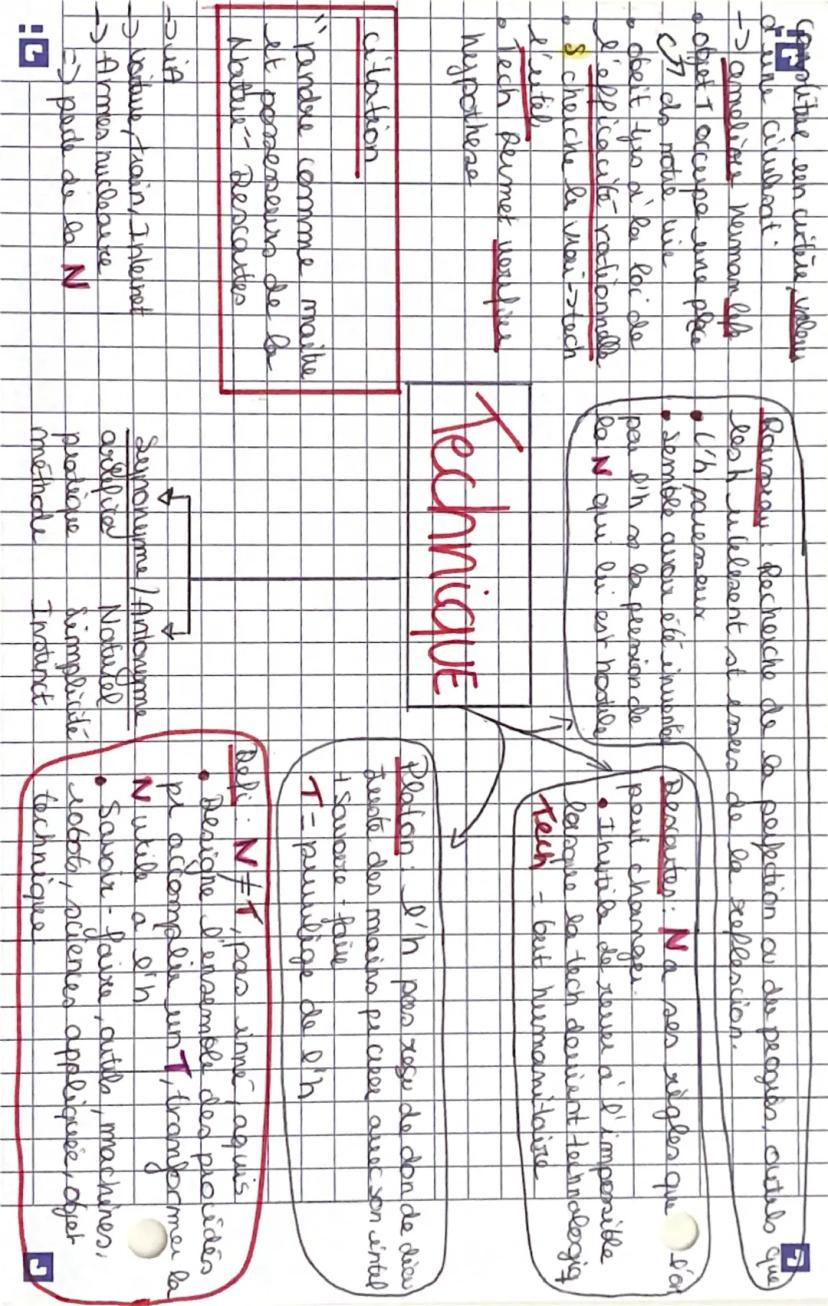 constitue un critère, valeur
d'une civilisat°.
-> améliore human life
• objet T occupe une place
ds notre vie
• obéit tjs à la loi de
l'efficacité rationnelle
• S cherche le vrai -> tech
l'utile
• Tech permet vérifier
hypothèse
citation
"rendre comme maitre
et possesseurs de la
Nature" Descartes
-> iA
-> voiture, train, Internet
-> Armes nucléaire
=> perte de la N
Technique
Rousseau : Recherche de la perfection ou du progrès, outils que
les h utilisent st issus de la reflexion.
• l'h paresseux
• semble avoir été inventé
par l'h ss la pression de
la N qui lui est hostile
Descartes : N a ses règles que l'on
peut changer.
• Inutile de rever à l'impossible
lorsque la tech devient technologiq
Tech = but humanitaire
Platon : l'h pas reçu de don de dieu
juste des mains pr créer avec son intel
+ savoir-faire
T = privilège de l'h
Synonyme / Antonyme
artificiel Naturel
pratique Simplicité
méthode Instinct
Défi : N ≠ T, pas inné, aquis
• Désigne l'ensemble des procédés
pr accomplir un T, transformer la
N utile à l'h
• Savoir-faire, outils, machines,
robots, sciences appliquée, objet
technique